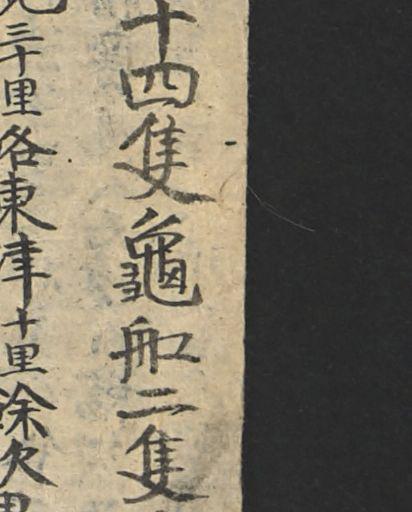 十四隻龜船二隻
三十里各東津十里餘次